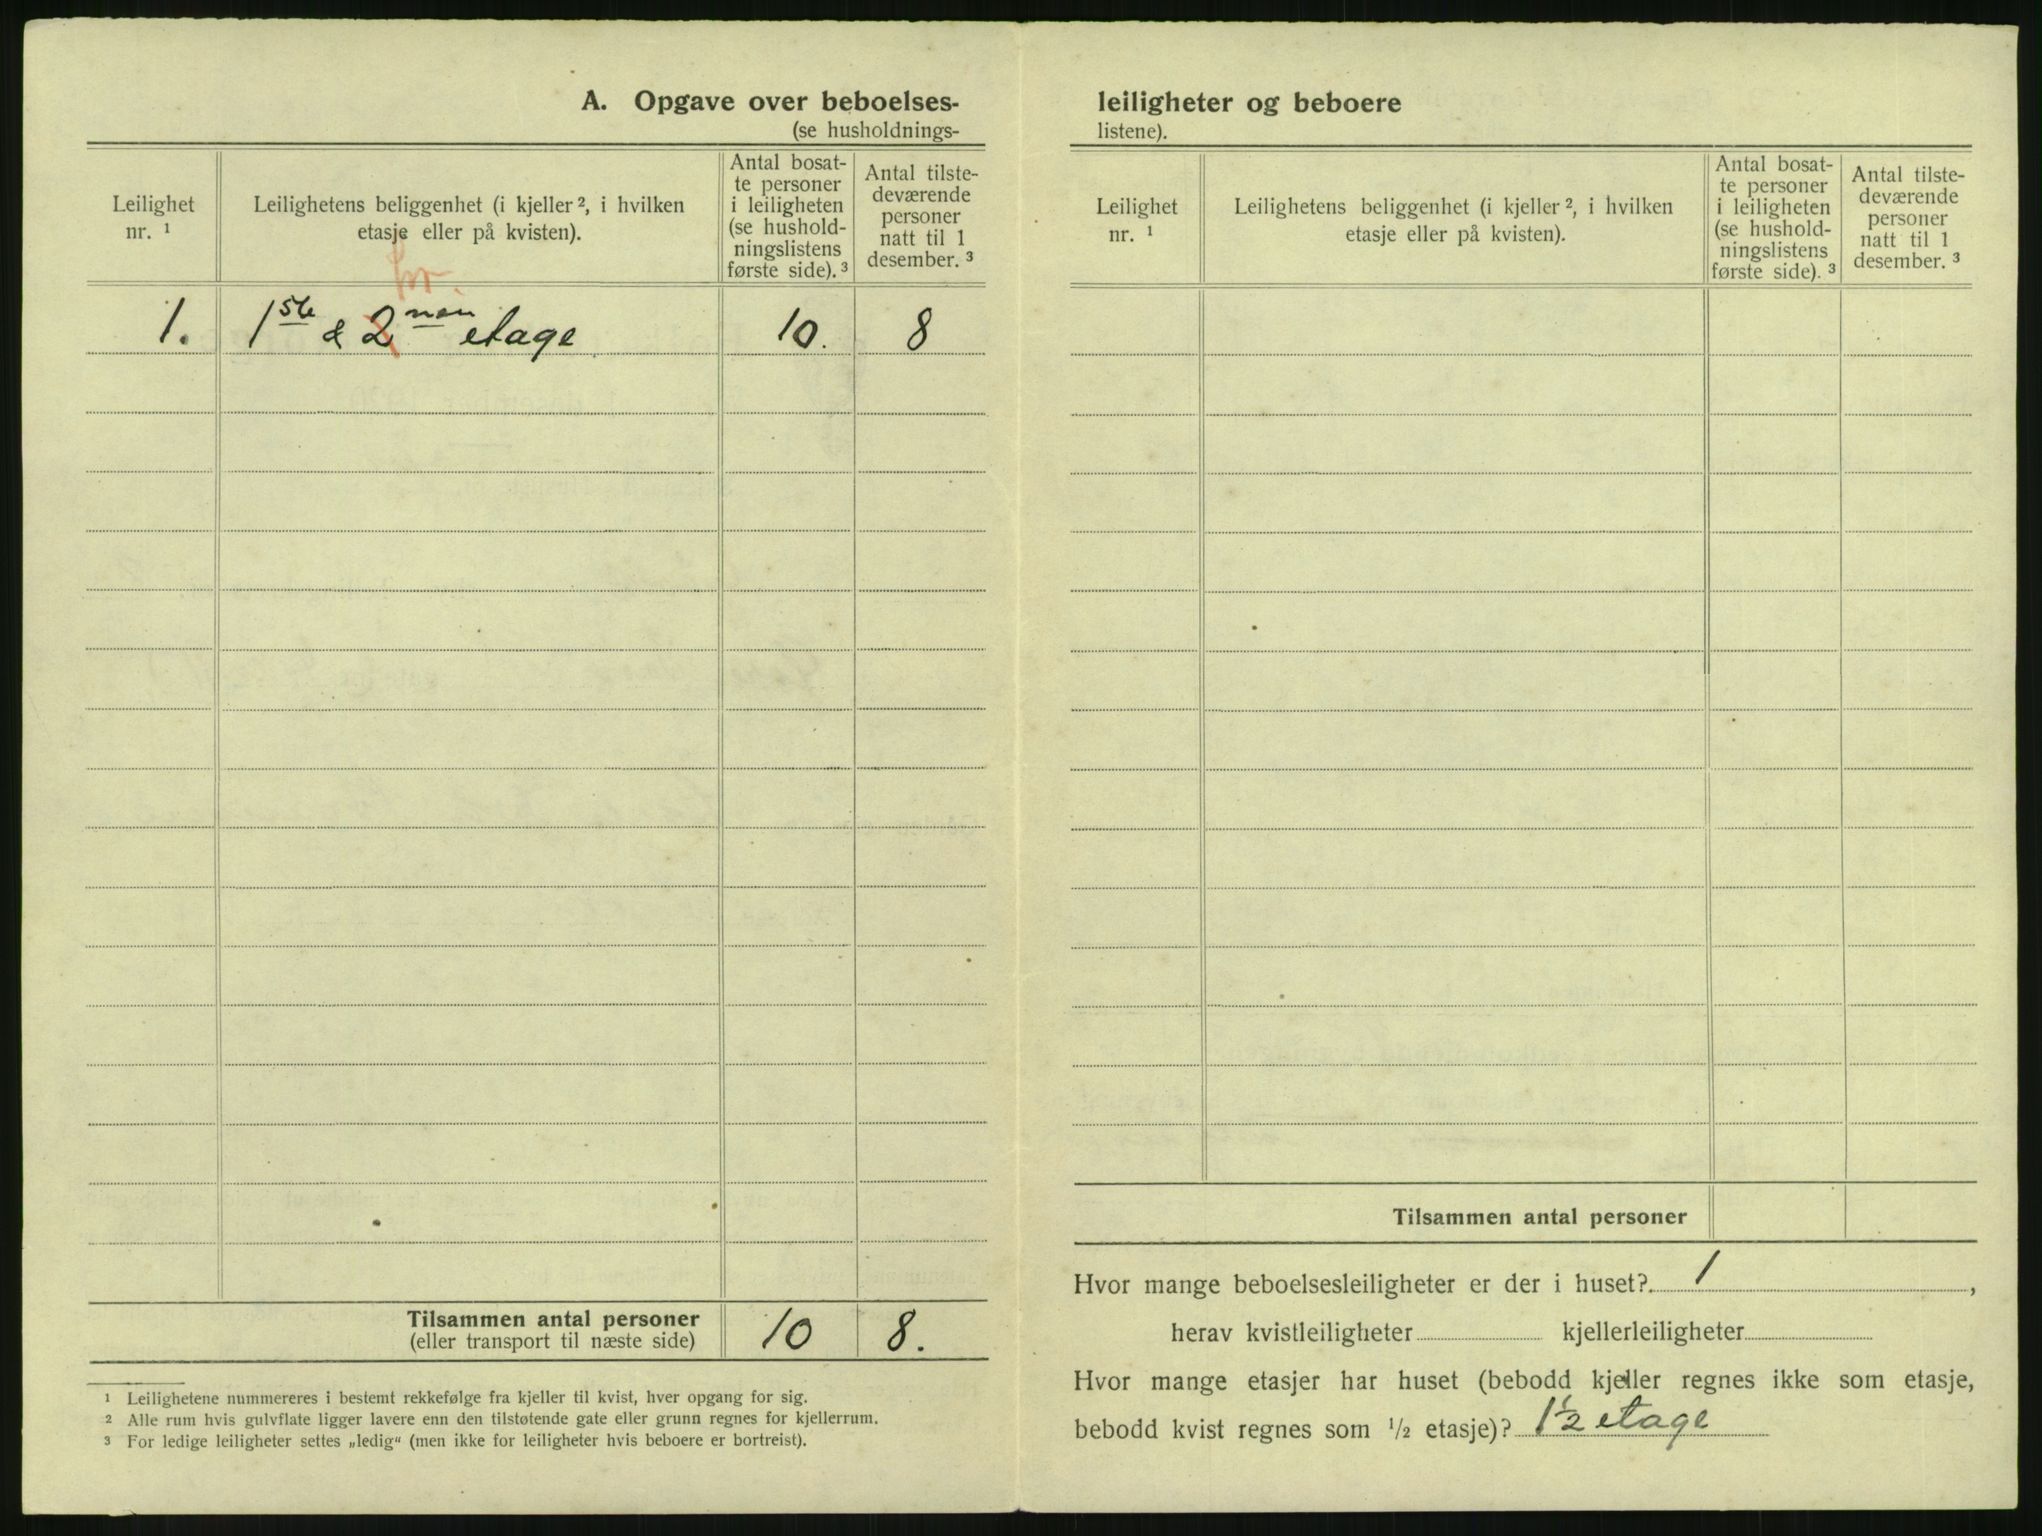 A. Opgave over beboelses-
(se husholdnings-
Leilighet
nr. ¹
Leilighetens beliggenhet (i kjeller ², i hvilken
etasje eller på kvisten).
Antal bosat-
te personer
i leiligheten
(se hushold-
ningslistens
første side). ³
Antal tilste-
deværende
personer
natt til 1
desember. ³
1. 1ste & 2nen etage 10. 8
Tilsammen antal personer 10 8.
(eller transport til næste side)
¹ Leilighetene nummereres i bestemt rekkefølge fra kjeller til kvist, hver opgang for sig.
² Alle rum hvis gulvflate ligger lavere enn den tilstøtende gate eller grunn regnes for kjellerrum.
³ For ledige leiligheter settes „ledig“ (men ikke for leiligheter hvis beboere er bortreist).
leiligheter og beboere
listene).
Leilighet
nr. ¹
Leilighetens beliggenhet (i kjeller ², i hvilken
etasje eller på kvisten).
Antal bosat-
te personer
i leiligheten
(se hushold-
ningslistens
første side). ³
Antal tilste-
deværende
personer
natt til 1
desember. ³
Tilsammen antal personer
Hvor mange beboelsesleiligheter er der i huset? 1,
herav kvistleiligheter kjellerleiligheter
Hvor mange etasjer har huset (bebodd kjeller regnes ikke som etasje,
bebodd kvist regnes som ½ etasje)? 1½ etage